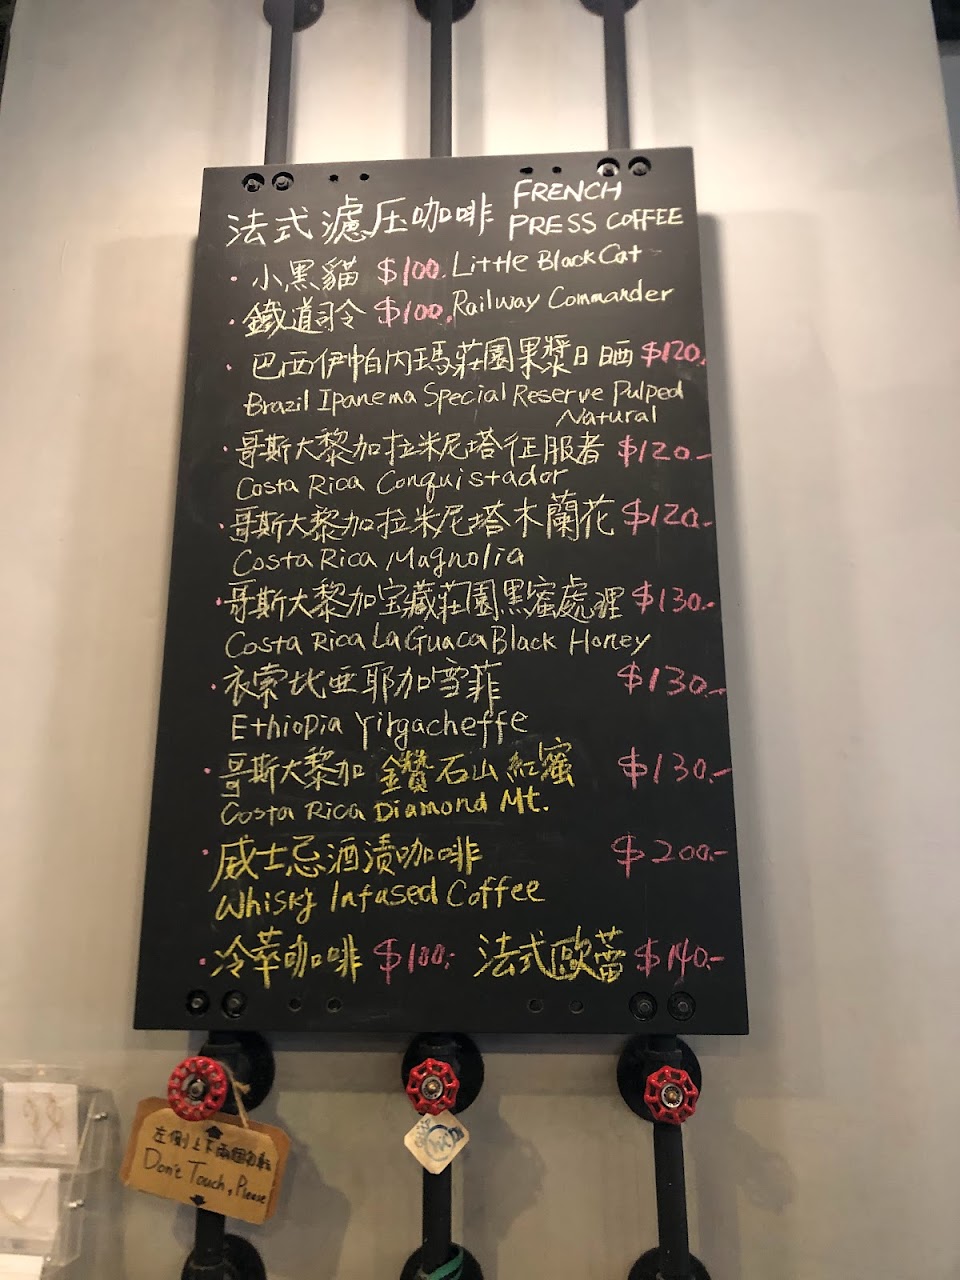 法式濾压咖啡 FRENCH PRESS COFFEE
· 小黑貓 $100. Little Black Cat
· 鐵道司令 $100. Railway Commander
· 巴西伊帕內瑪莊園果漿日晒 $120.
Brazil Ipanema Special Reserve Pulped
Natural
· 哥斯大黎加拉米尼塔征服者 $120.-
Costa Rica Conquistador
· 哥斯大黎加拉米尼塔木蘭花 $120.-
Costa Rica Magnolia
· 哥斯大黎加宝藏莊園黑蜜處理 $130.-
Costa Rica La Guaca Black Honey
· 衣索比亚耶加雪菲 $130.-
Ethiopia Yirgacheffe
· 哥斯大黎加 鑽石山 紅蜜 $130.-
Costa Rica Diamond Mt.
· 威士忌酒漬咖啡 $200.-
Whisky Infused Coffee
· 冷萃咖啡 $100.- 法式歐蕾 $140.-
左側上下兩個
Don't Touch, Please